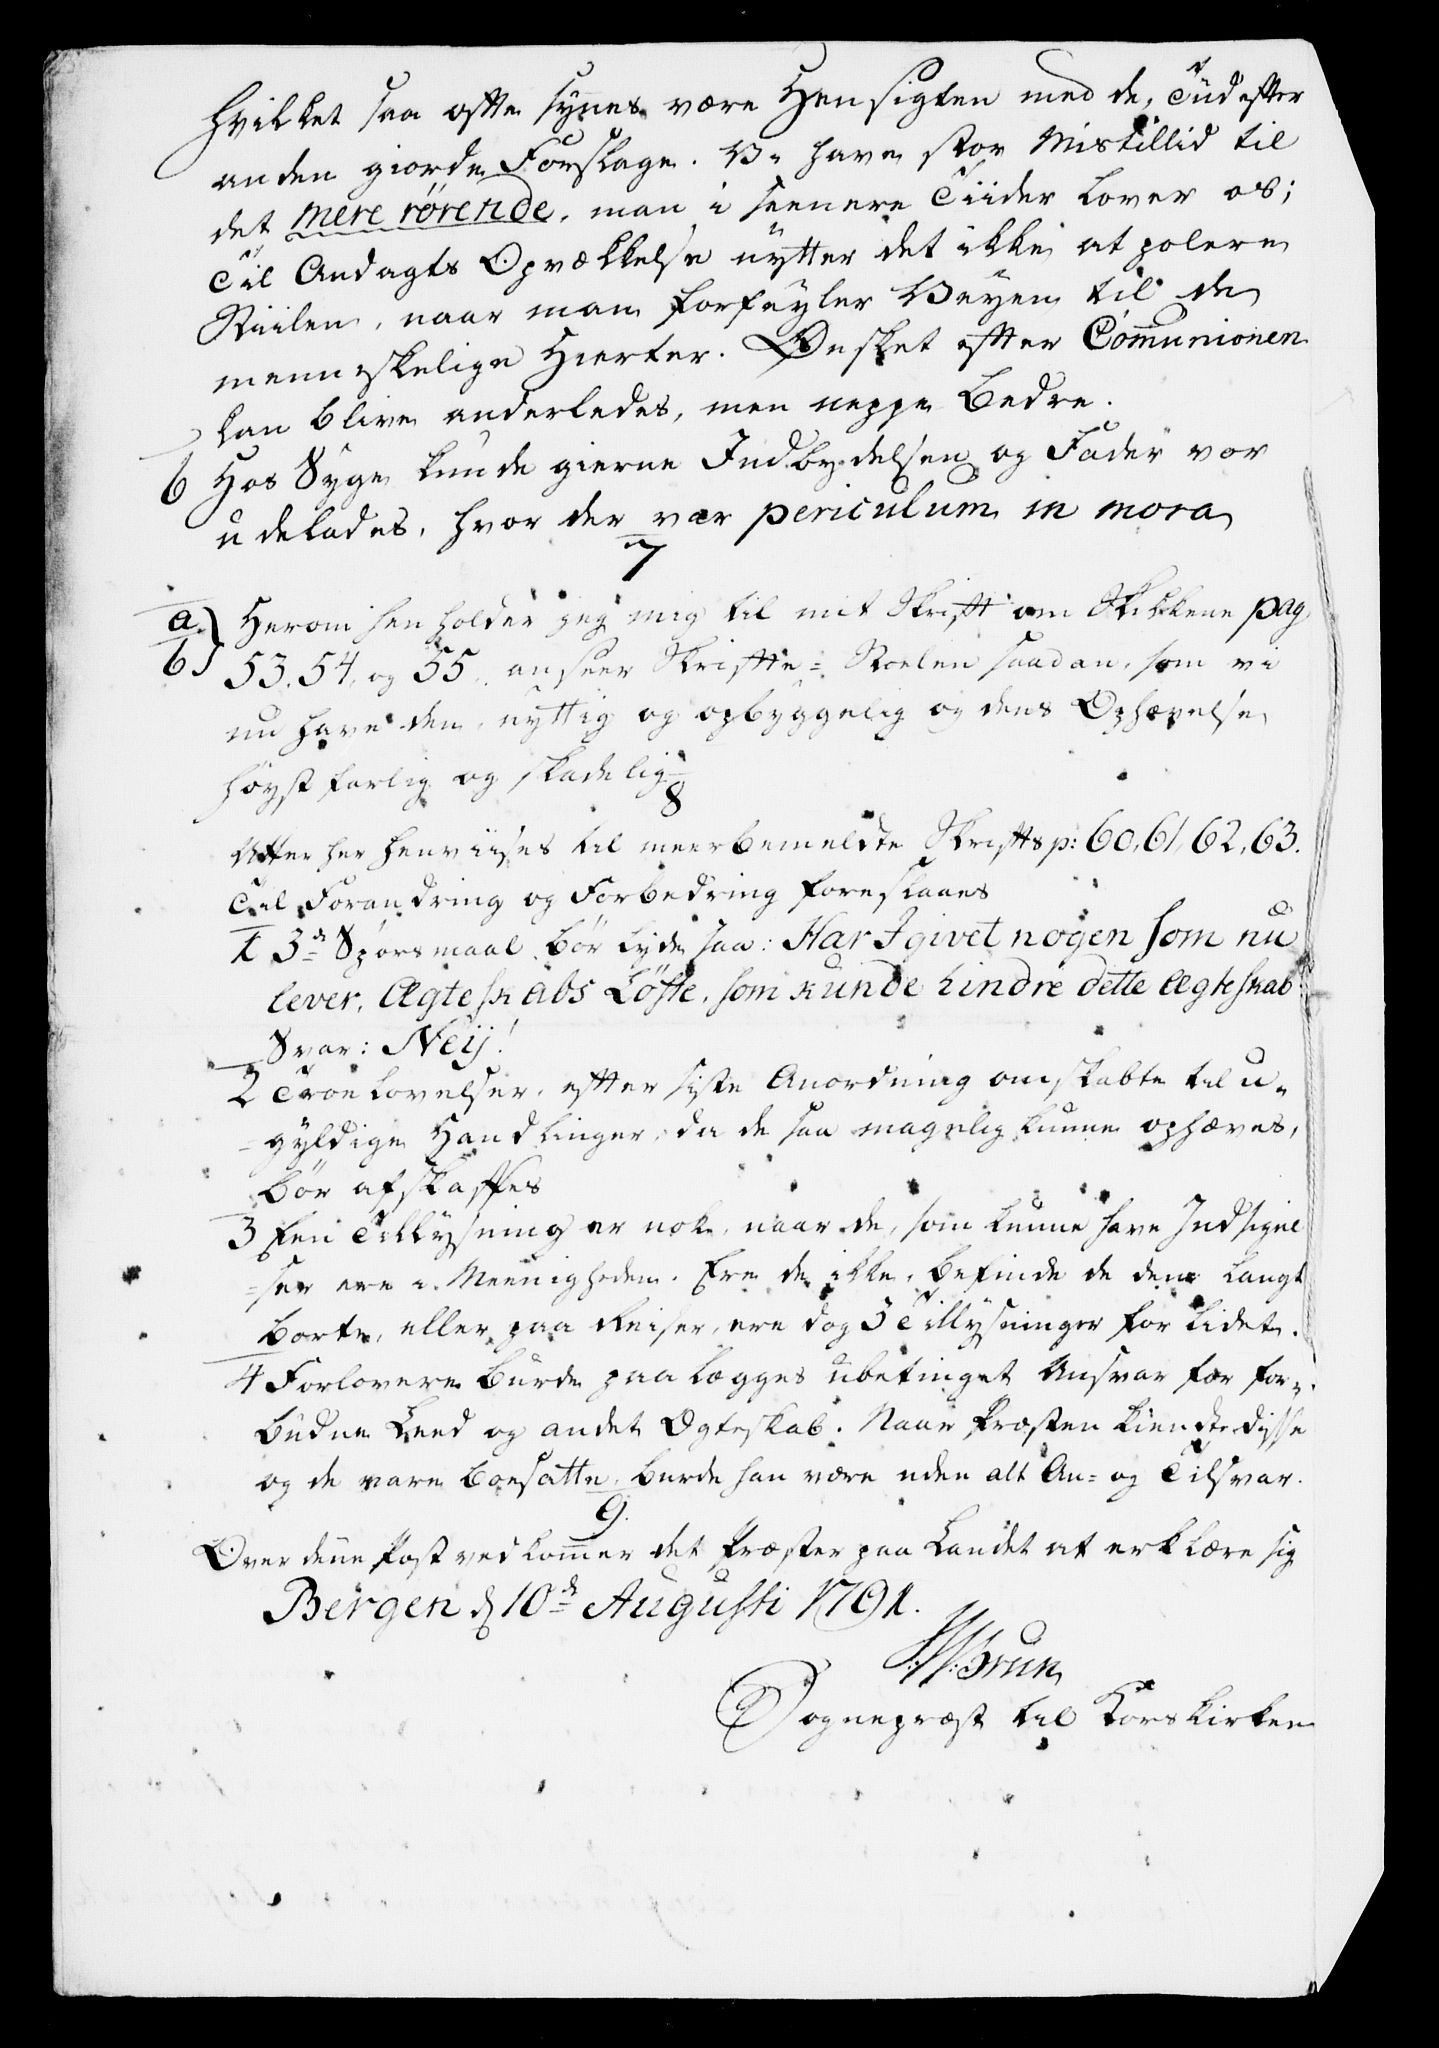 hvilket saa ofte synes være Hensigten med de, Tiid efter
anden giorde Forslage. Vi have stor Mistillid til
det mere rørende, man i seenere Tiider lover os;
Til Andagts Opvækkelse nytter det ikke at polere
Stiilen, naar man forfeyler Veyen til de
menneskelige Hierter. Ønsket efter Com̄unionen
kan blive anderledes, men neppe bedre.
b Hos Syge kunde gierne Indbydelsen og Fader vor
udelades, hvor der var periculum in mora
7
a) Herom henholder jeg mig til mit Skrift om Skikkene pag
b) 53, 54, og 55, anseer Skrifte-Stoelen saadan, som vi
nu have den, nyttig og opbyggelig og dens Ophævelse
høyst farlig og skadelig
8
Atter her henviises til meerbemeldte Skrifts p: 60, 61, 62, 63.
Til Forandring og Forbedring foreslaaes
1 3de Spørsmaal bør lyde saa: Har I givet nogen som nu
lever, Ægteskabs Løfte, som kunde hindre dette Ægteskab
Svar: Neij!
2 Troelovelser, efter siste Anordning omskabte til u-
-gyldige Handlinger, da de saa magelig kunne ophæves,
bør afskaffes
3 Een Tillysning er nok, naar de, som kunne have Indsigel
-ser ere i Meenigheden. Ere de ikke, befinde de dem langt
borte, eller paa Reiser, ere dog 3 Tillysninger for lidet.
4 Forlovere burde paalægges ubetinget Ansvar for for-
budne Leed og andet Ægteskab. Naar Præsten kiendte disse
og de vare boesatte, burde han være uden alt An- og Tilsvar.
9.
Over denne Post vedkom̄er det Præster paa Landet at erklære sig
Bergen d 10de Augusti 1791.
J: N: Brun
Sognepræst til Korskirken